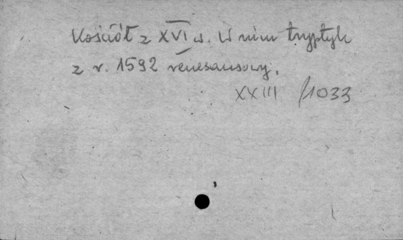 Kościół z XVI w. W nim tryptyk
z r. 1592 renesansowy.
XXIII /1033